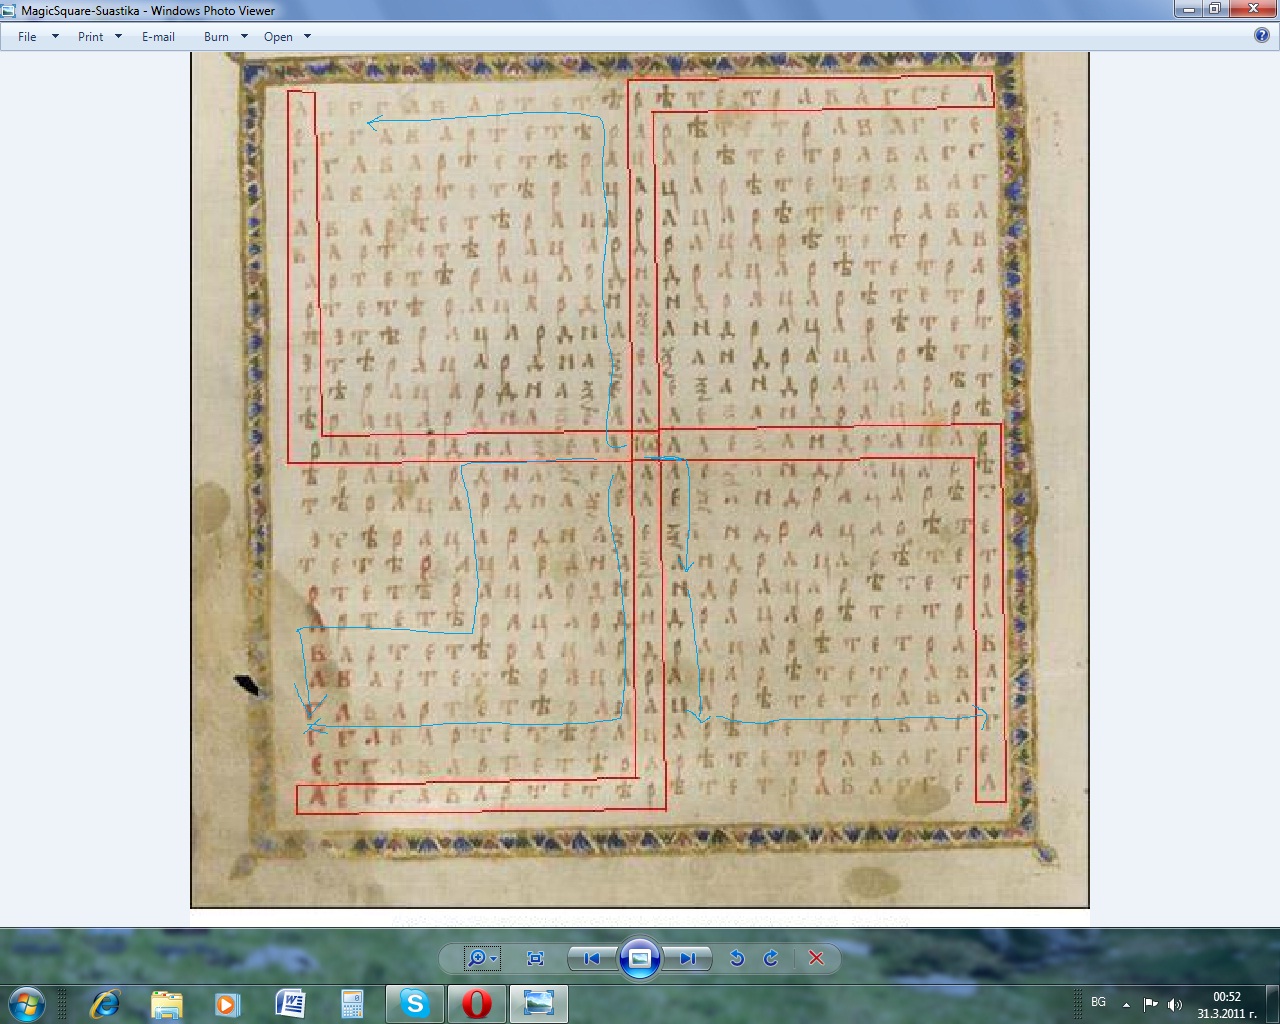 MagicSquare-Suastika - Windows Photo Viewer
File Print E-mail Burn Open
Л Е Г Г А В А Р Т Е Т Ѣ Р Ѣ Т Е Т Р А В А Г Г Е Л
Е Г Г А В А Р Т Е Т Ѣ Р А Р Ѣ Т Е Т Р А В А Г Г Е
Г Г А В А Р Т Е Т Ѣ Р А Ц А Р Ѣ Т Е Т Р А В А Г Г
Г А В А Р Т Е Т Ѣ Р А Ц А Ц А Р Ѣ Т Е Т Р А В А Г
А В А Р Т Е Т Ѣ Р А Ц А Р А Ц А Р Ѣ Т Е Т Р А В А
В А Р Т Е Т Ѣ Р А Ц А Р Д Р А Ц А Р Ѣ Т Е Т Р А В
А Р Т Е Т Ѣ Р А Ц А Р Д Н Д Р А Ц А Р Ѣ Т Е Т Р А
Р Т Е Т Ѣ Р А Ц А Р Д Н А Н Д Р А Ц А Р Ѣ Т Е Т Р
Т Е Т Ѣ Р А Ц А Р Д Н А Ѯ А Н Д Р А Ц А Р Ѣ Т Е Т
Е Т Ѣ Р А Ц А Р Д Н А Ѯ Е Ѯ А Н Д Р А Ц А Р Ѣ Т Е
Т Ѣ Р А Ц А Р Д Н А Ѯ Е Л Е Ѯ А Н Д Р А Ц А Р Ѣ Т
Ѣ Р А Ц А Р Д Н А Ѯ Е Л А Л Е Ѯ А Н Д Р А Ц А Р Ѣ
Р А Ц А Р Д Н А Ѯ Е Л А ІѠ А Л Е Ѯ А Н Д Р А Ц А Р
Ѣ Р А Ц А Р Д Н А Ѯ Е Л А Л Е Ѯ А Н Д Р А Ц А Р Ѣ
Т Ѣ Р А Ц А Р Д Н А Ѯ Е Л Е Ѯ А Н Д Р А Ц А Р Ѣ Т
Е Т Ѣ Р А Ц А Р Д Н А Ѯ Е Ѯ А Н Д Р А Ц А Р Ѣ Т Е
Т Е Т Ѣ Р А Ц А Р Д Н А Ѯ А Н Д Р А Ц А Р Ѣ Т Е Т
Р Т Е Т Ѣ Р А Ц А Р Д Н А Н Д Р А Ц А Р Ѣ Т Е Т Р
А Р Т Е Т Ѣ Р А Ц А Р Д Н Д Р А Ц А Р Ѣ Т Е Т Р А
В А Р Т Е Т Ѣ Р А Ц А Р Д Р А Ц А Р Ѣ Т Е Т Р А В
А В А Р Т Е Т Ѣ Р А Ц А Р А Ц А Р Ѣ Т Е Т Р А В А
Г А В А Р Т Е Т Ѣ Р А Ц А Ц А Р Ѣ Т Е Т Р А В А Г
Г Г А В А Р Т Е Т Ѣ Р А Ц А Р Ѣ Т Е Т Р А В А Г Г
Е Г Г А В А Р Т Е Т Ѣ Р А Р Ѣ Т Е Т Р А В А Г Г Е
Л Е Г Г А В А Р Т Е Т Ѣ Р Ѣ Т Е Т Р А В А Г Г Е Л
BG
00:52
31.3.2011 г.